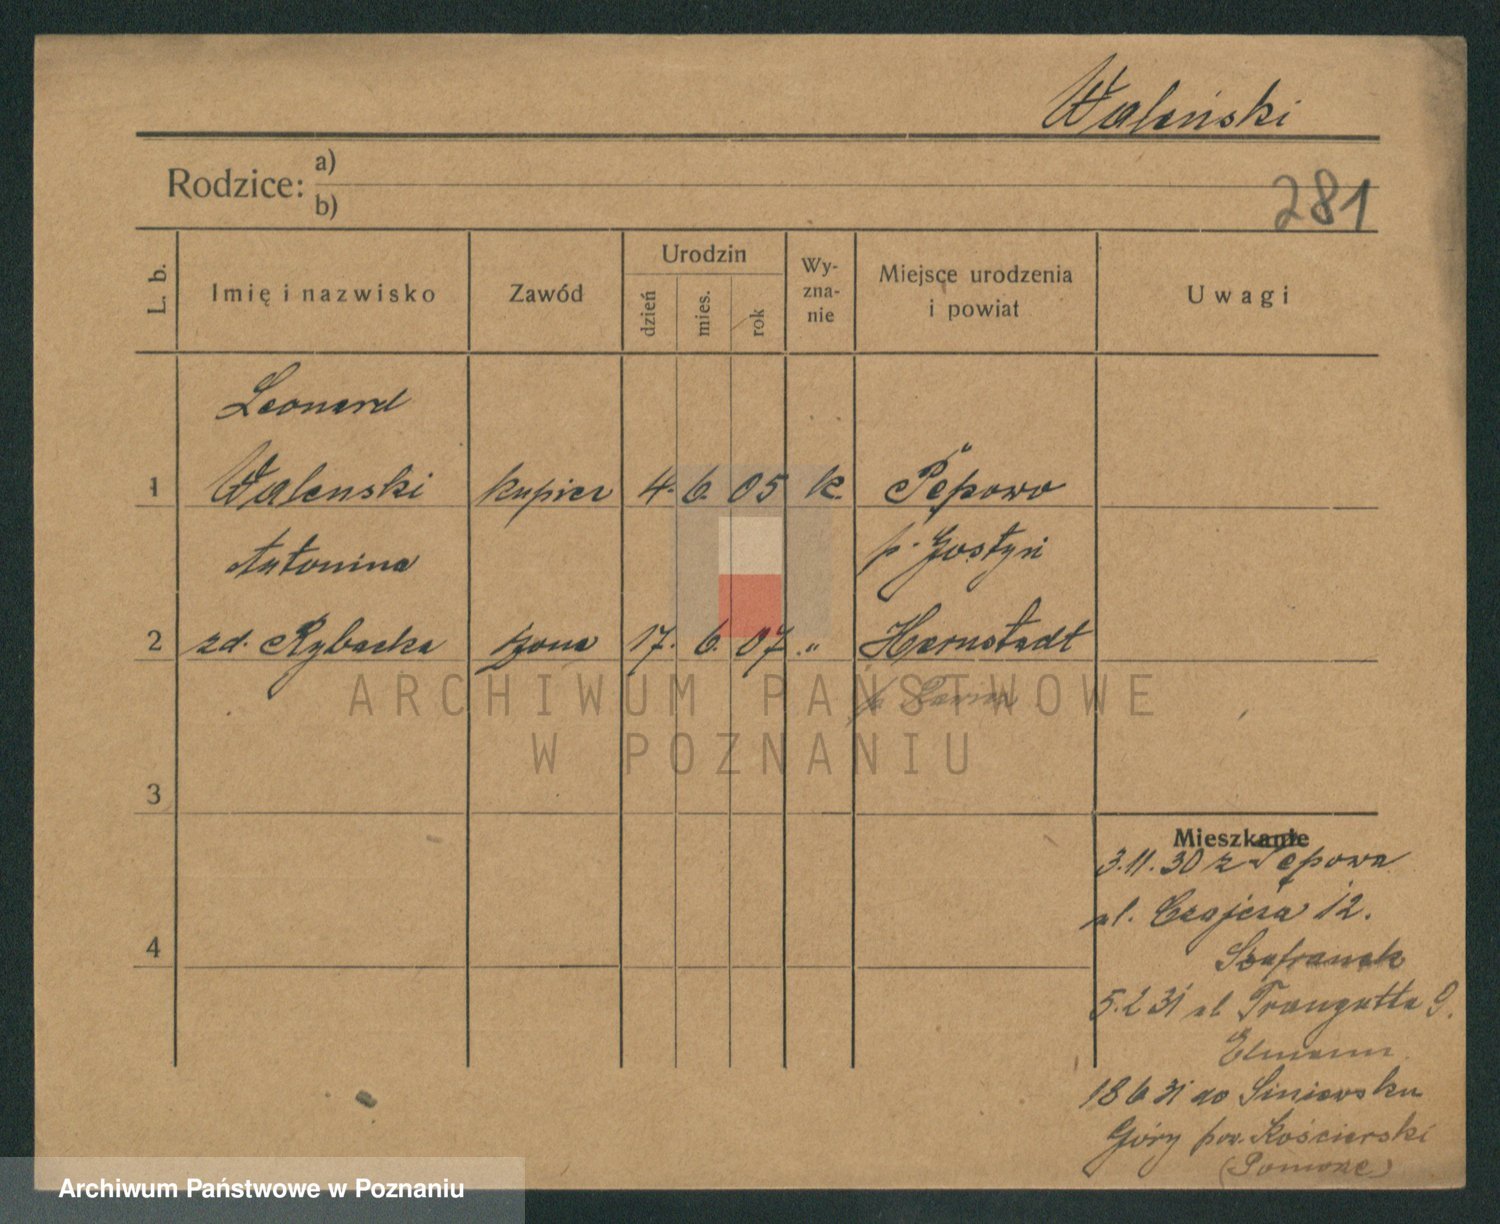 Waleński
Rodzice: a)
b)
281
L. b.
Imię i nazwisko
Zawód
Urodzin
dzień
mies.
rok
Wy-
zna-
nie
Miejsce urodzenia
i powiat
Uwagi
Leonard
1 Walenski kupiec 4. 6. 05 k. Pępowo
Antonina p. Gostyń
2 zd. Rybacka żona 17. 6. 07 " Hernstadt
3
4
Mieszkanie
3.11.30 z Pępowa
ul. Czajcza 12.
Szafranek
5.2 31 ul Traugutta 9.
Elmann
18 6 31 do
Góry pow. Kościerski
(Pomorze)
ARCHIWUM PAŃSTWOWE
W POZNANIU
Archiwum Państwowe w Poznaniu